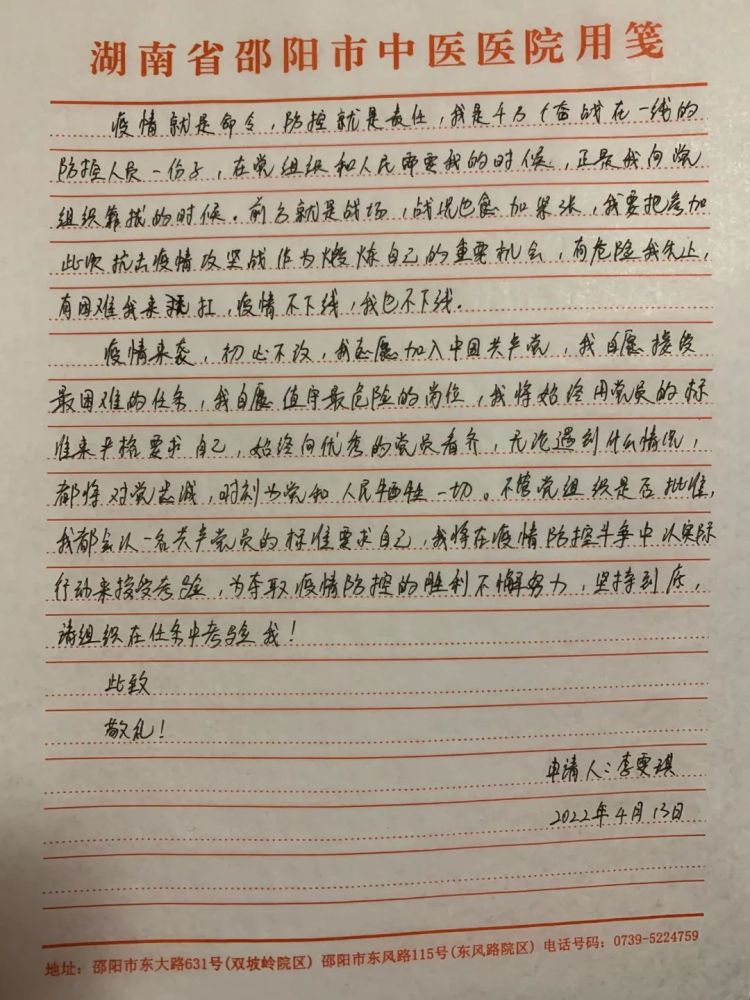 湖南省邵阳市中医医院用笺
疫情就是命令，防控就是责任，我是千万个奋战在一线的
防控人员一份子，在党组织和人民需要我的时候，正是我向党
组织靠拢的时候。前方就是战场，战况已愈加紧张，我要把参加
此次抗击疫情攻坚战作为锻炼自己的重要机会，有危险我先上，
有困难我来扛，疫情不下线，我也不下线。
疫情来袭，初心不改，我志愿加入中国共产党，我自愿接受
最困难的任务，我自愿值守最危险的岗位，我将始终用党员的标
准来严格要求自己，始终向优秀的党员看齐，无论遇到什么情况，
都将对党忠诚，时刻为党和人民牺牲一切。不管党组织是否批准，
我都会以一名共产党员的标准要求自己，我将在疫情防控斗争中以实际
行动来接受考验，为夺取疫情防控的胜利不懈努力，坚持到底，
请组织在任务中考验我！
此致
敬礼！
申请人：李雯琪
2022年4月13日
地址：邵阳市东大路631号(双坡岭院区) 邵阳市东风路115号(东风路院区) 电话号码：0739-5224759